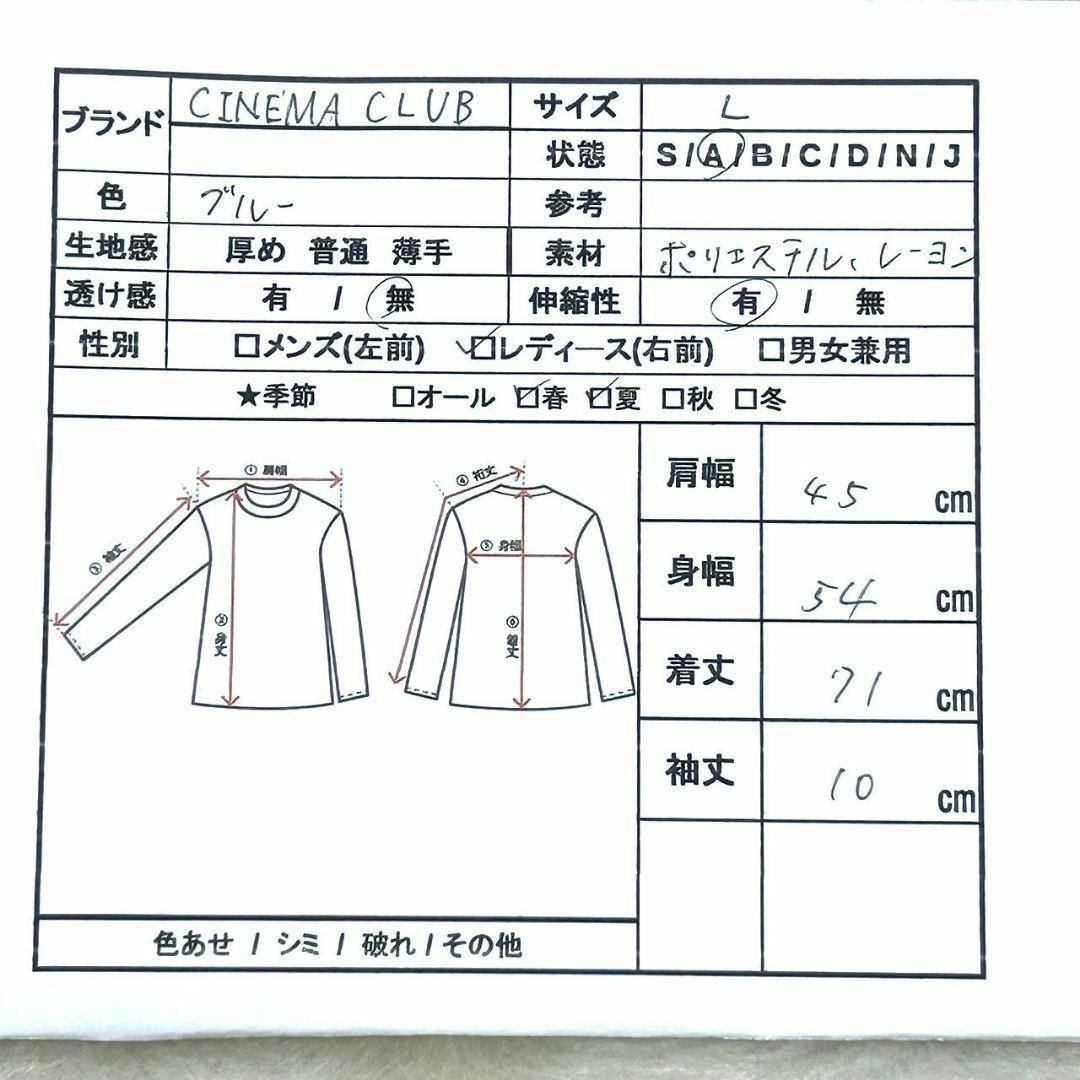 ブランド CINEMA CLUB サイズ L
状態 S/A/B/C/D/N/J
色 ブルー 参考
生地感 厚め 普通 薄手 素材 ポリエステル、レーヨン
透け感 有 / 無 伸縮性 有 / 無
性別 □メンズ(左前) ☑レディース(右前) □男女兼用
★季節 □オール ☑春 ☑夏 □秋 □冬
① 肩幅
③ 袖丈
② 身丈
④ 裄丈
⑤ 身幅
⑥ 着丈
肩幅 45 cm
身幅 54 cm
着丈 71 cm
袖丈 10 cm
色あせ / シミ / 破れ / その他